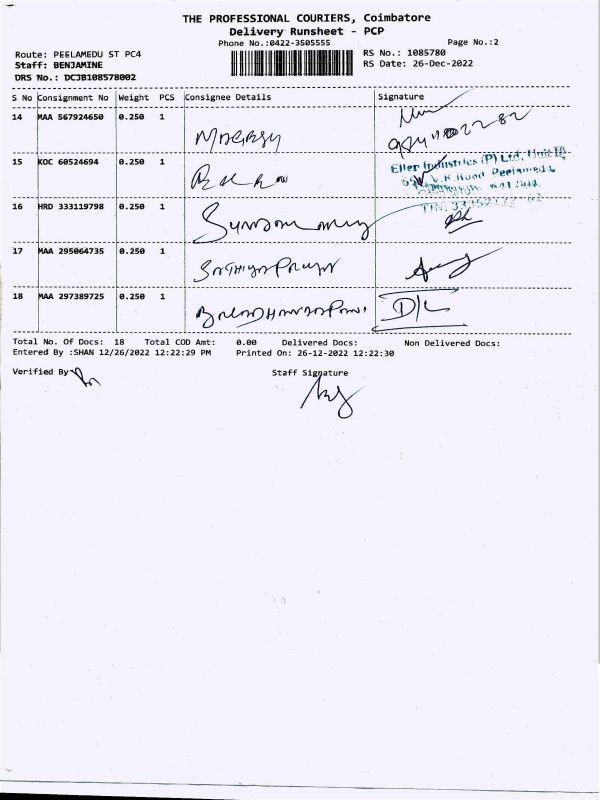 THE PROFESSIONAL COURIERS, Coimbatore
Delivery Runsheet - PCP
Phone No.:0422-3505555 Page No.:2
Route: PEELAMEDU ST PC4 RS No.: 1085780
Staff: BENJAMINE RS Date: 26-Dec-2022
DRS No.: DCJB108578002
S No Consignment No Weight PCS Consignee Details Signature
14 MAA 567924650 0.250 1
15 KOC 60524694 0.250 1
Eller Industries (P) Ltd., Unit III
16 HRD 333119798 0.250 1
17 MAA 295064735 0.250 1 SATHIYAPRIYA
18 MAA 297389725 0.250 1 D/L
Total No. Of Docs: 18 Total COD Amt: 0.00 Delivered Docs: Non Delivered Docs:
Entered By :SHAN 12/26/2022 12:22:29 PM Printed On: 26-12-2022 12:22:30
Verified By Staff Signature